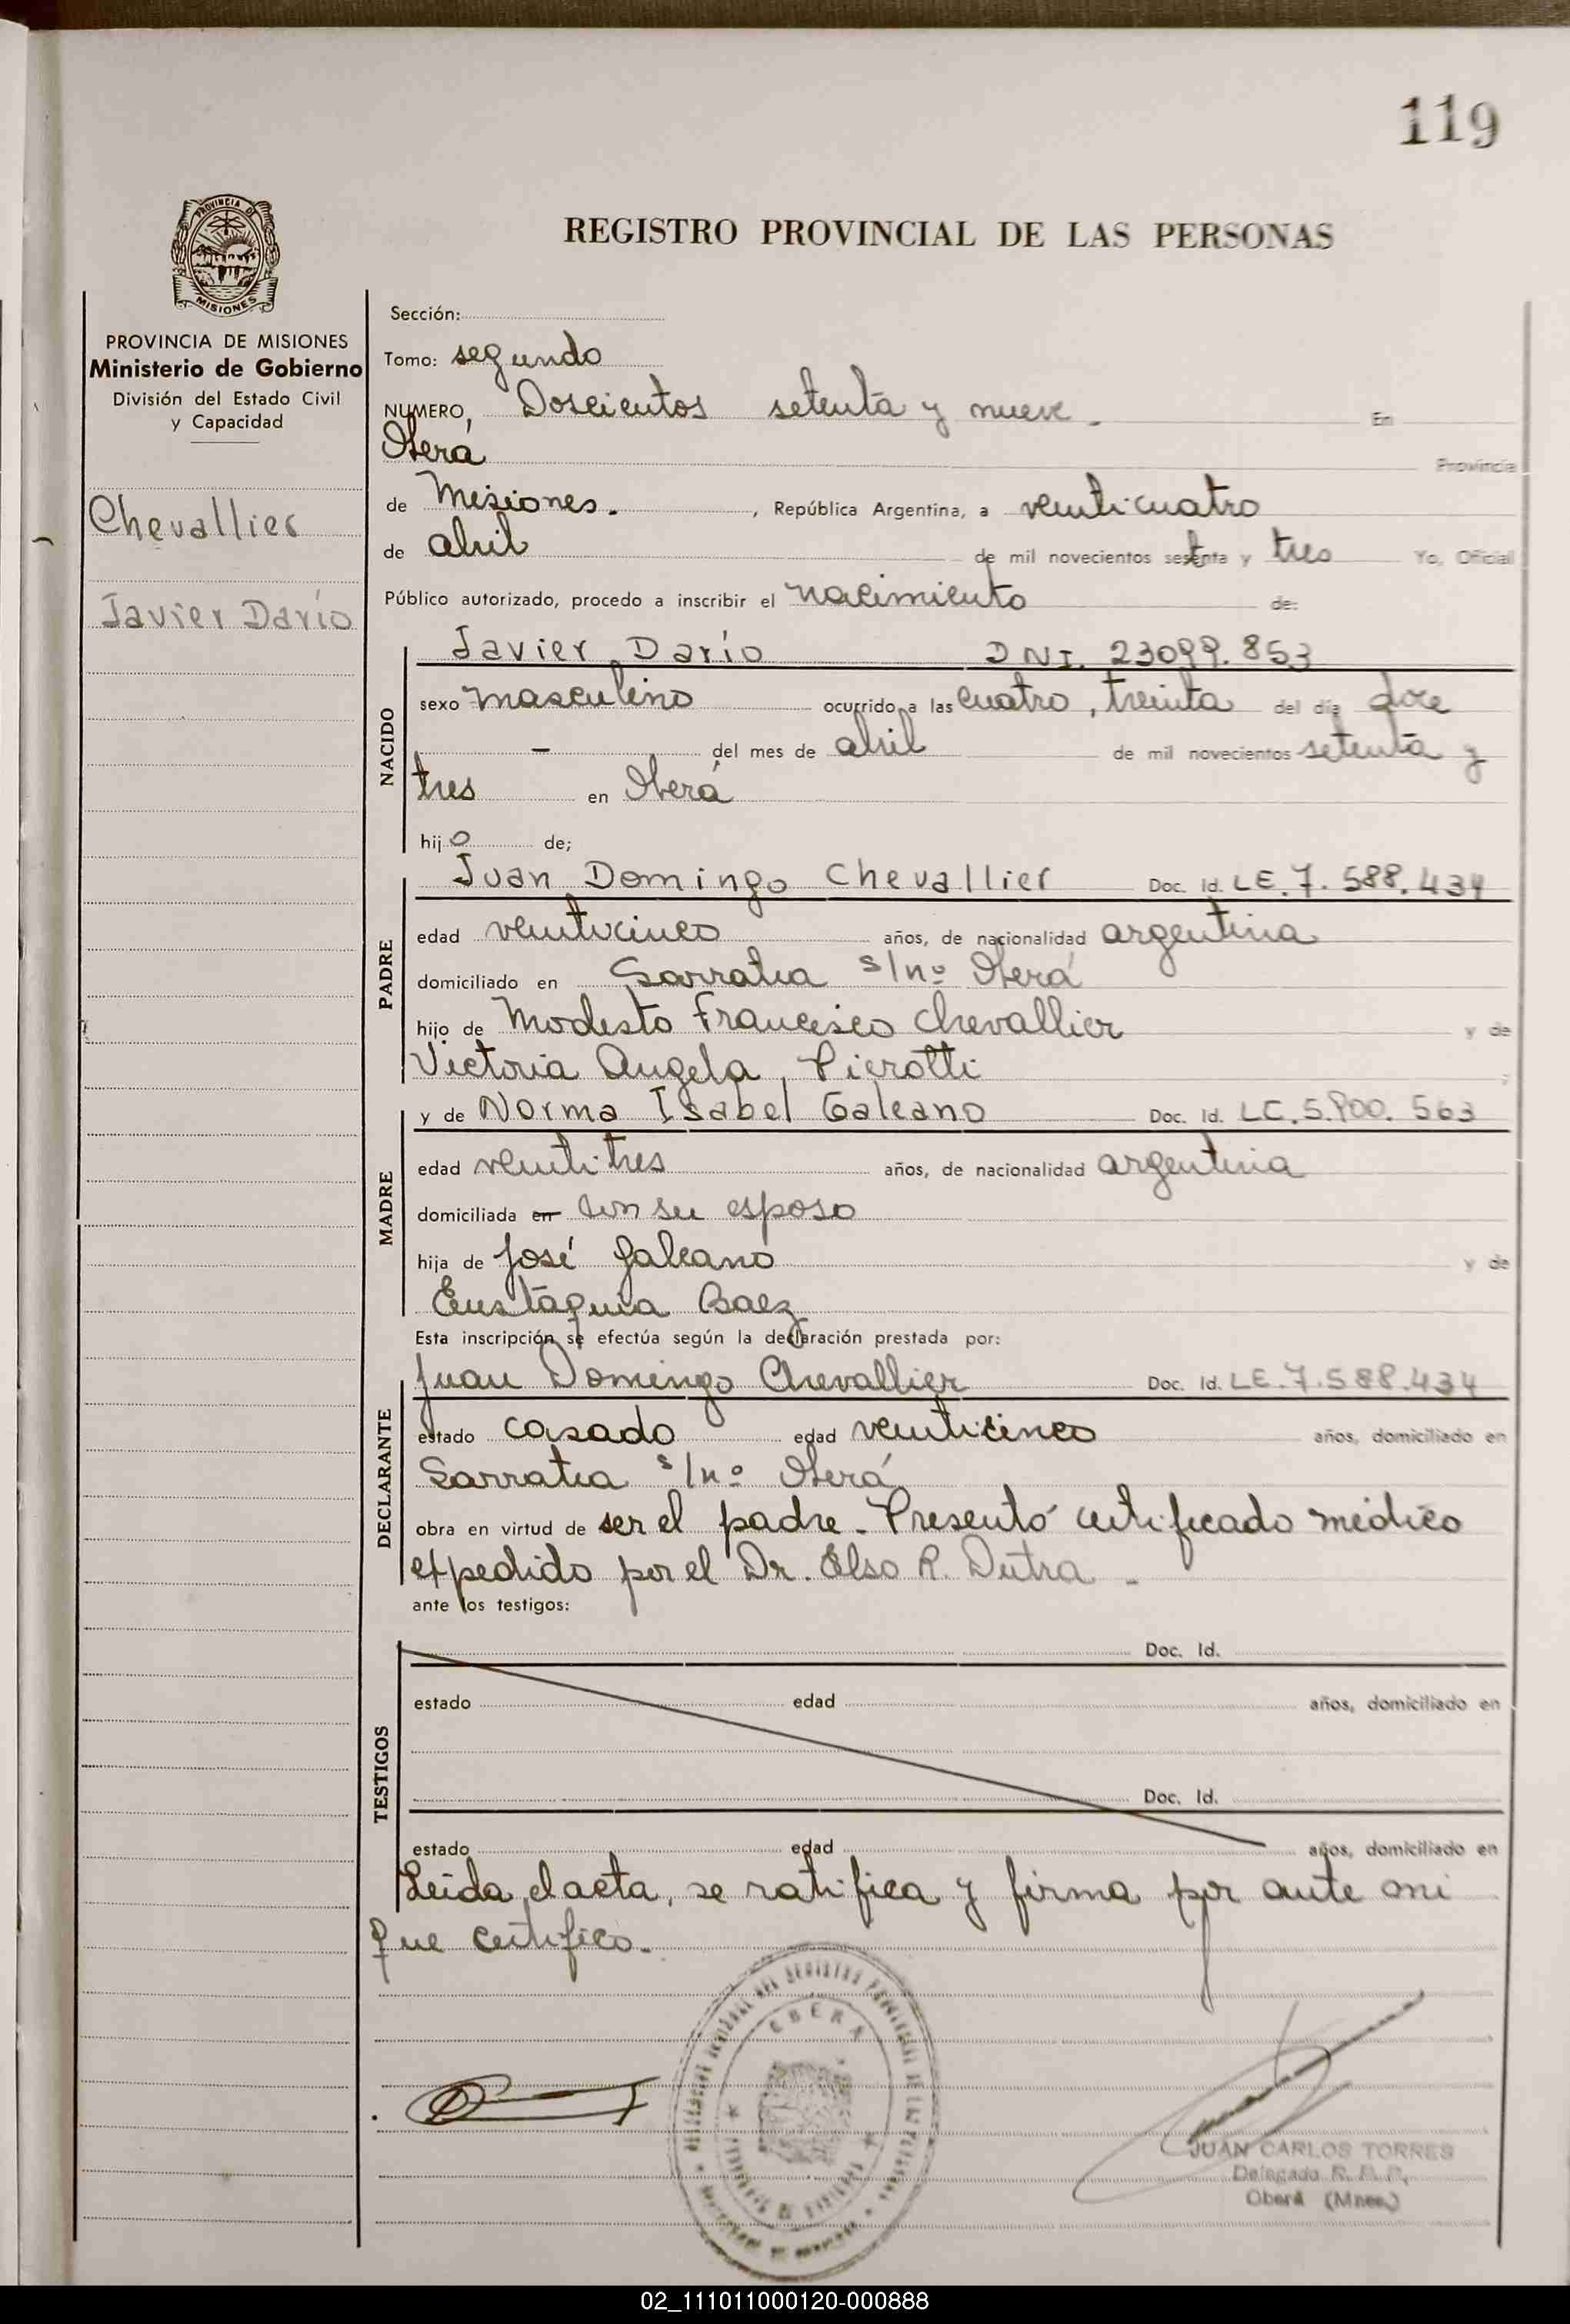 119
PROVINCIA DE
MISIONES
REGISTRO PROVINCIAL DE LAS PERSONAS
PROVINCIA DE MISIONES
Ministerio de Gobierno
División del Estado Civil
y Capacidad
Chevallier
Javier Darío
Sección:
Tomo: segundo
NUMERO, Doscientos setenta y nueve. En
Oberá Provincia
de Misiones. , República Argentina, a veinticuatro
de abril de mil novecientos setenta y tres Yo, Oficial
Público autorizado, procedo a inscribir el nacimiento de:
NACIDO
Javier Darío DNI. 23099.853
sexo masculino ocurrido a las cuatro, treinta del día doce
- del mes de abril de mil novecientos setenta y
tres en Oberá
hijo de;
PADRE
Juan Domingo Chevallier Doc. Id. LE. 7.588.434
edad veinticinco años, de nacionalidad argentina
domiciliado en Sarratea s/nº Oberá
hijo de Modesto Francisco Chevallier y de
Victoria Angela Pierotti
MADRE
y de Norma Isabel Galeano Doc. Id. LC. 5.900.563
edad veintitres años, de nacionalidad argentina
domiciliada en con su esposo
hija de José Galeano y de
Eustaquia Baez
Esta inscripción se efectúa según la declaración prestada por:
DECLARANTE
Juan Domingo Chevallier Doc. Id. LE. 7.588.434
estado casado edad veinticinco años, domiciliado en
Sarratea s/nº Oberá
obra en virtud de ser el padre. Presentó certificado médico
expedido por el Dr. Elso R. Dutra -
ante los testigos:
TESTIGOS
Doc. Id.
estado edad años, domiciliado en
Doc. Id.
estado edad años, domiciliado en
Leída el acta, se ratifica y firma por ante mi
que certifico.
OBERA
JUAN CARLOS TORRES
Delegado R. P. P.
Oberá (Mnes.)
02_111011000120-000888